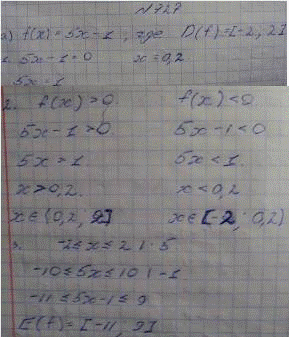 №727
а) f(x) = 5x-1, где D(f)=[-2, 2]
1. 5x-1=0 x=0,2
5x=1
2. f(x)>0. f(x)<0.
5x-1>0. 5x-1<0
5x>1. 5x<1.
x>0,2. x<0,2
x∈(0,2; 9] x∈[-2; 0,2)
3. -2≤x≤2 | ·5
-10≤5x≤10 | -1
-11≤5x-1≤9
E(f)=[-11; 9]